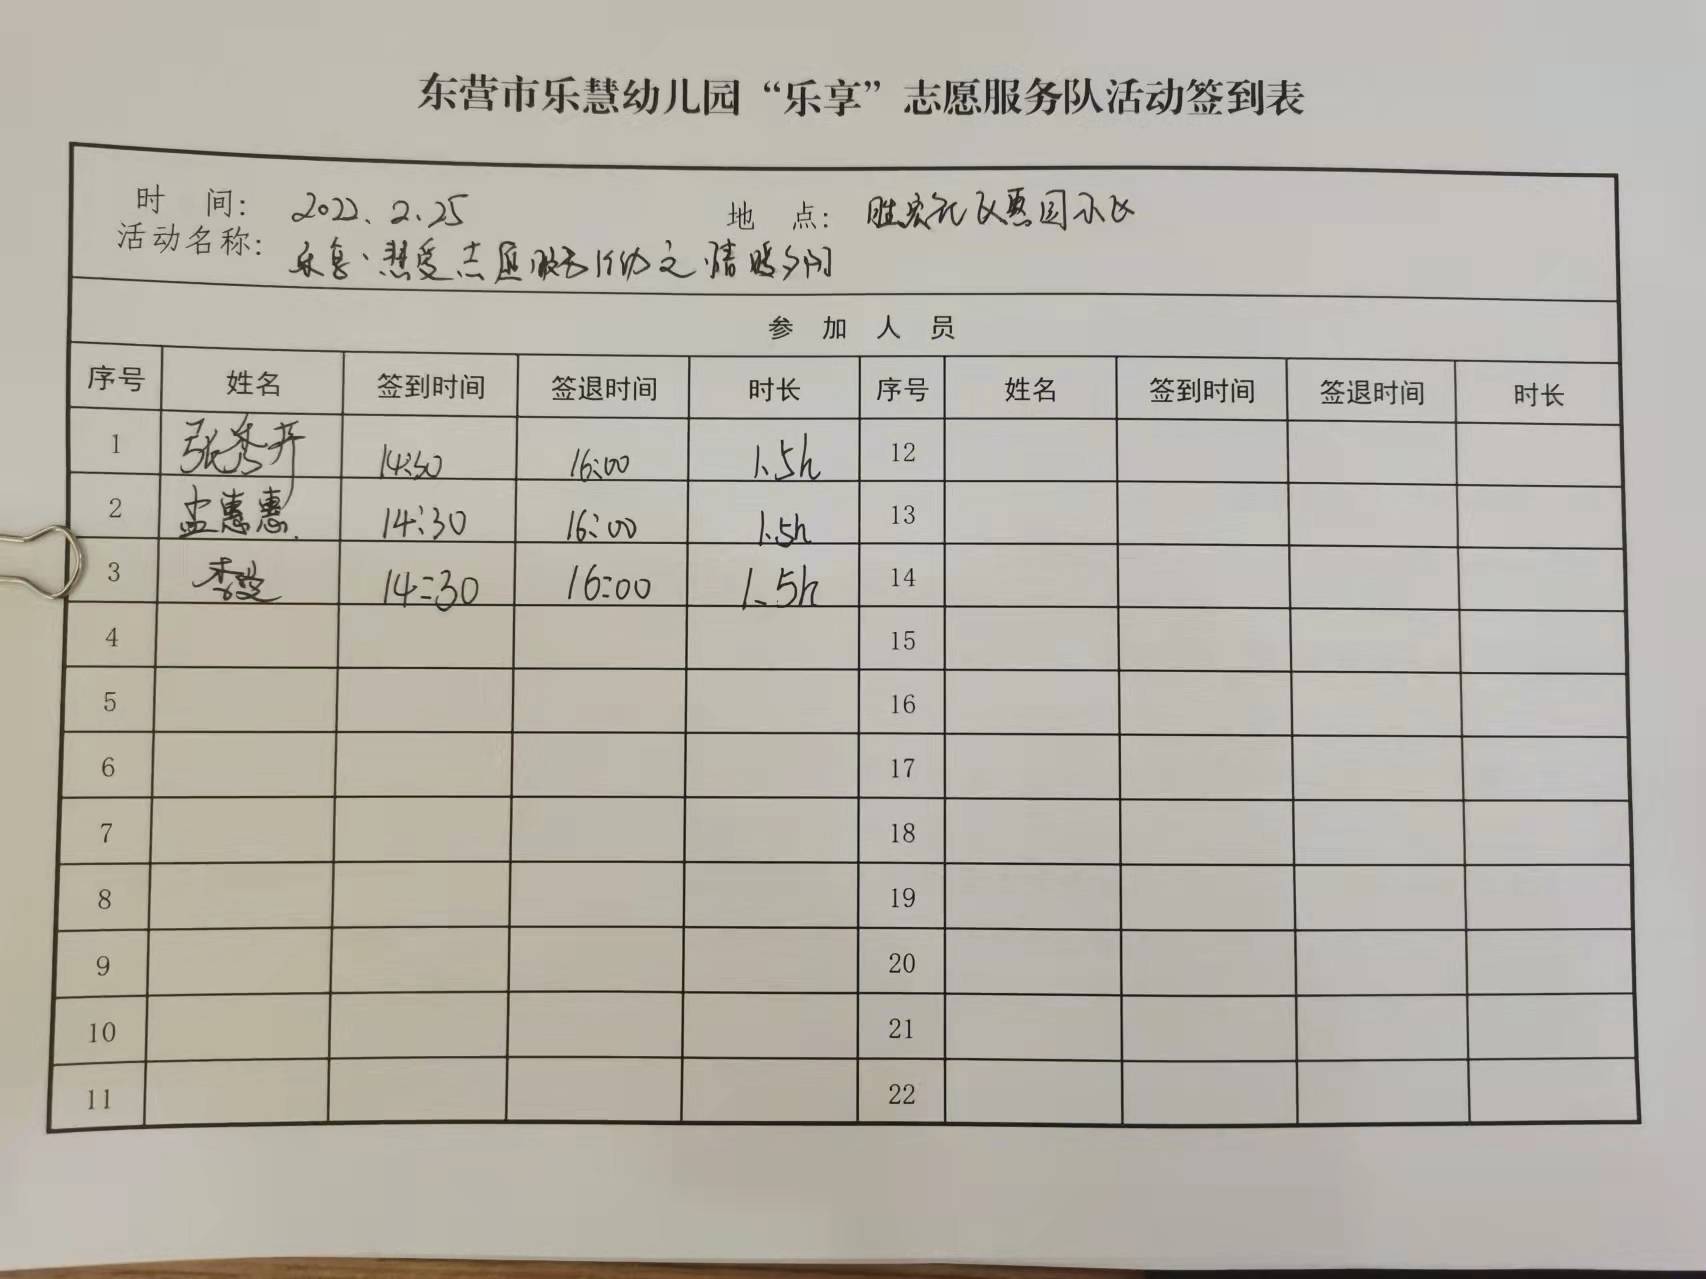 东营市乐慧幼儿园“乐享”志愿服务队活动签到表
时 间： 2022.2.25 地 点： 社区惠园小区
活动名称： 乐享·慧爱志愿服务活动之情暖夕阳
参 加 人 员
序号 姓名 签到时间 签退时间 时长 序号 姓名 签到时间 签退时间 时长
1 张秀卉 14:30 16:00 1.5h 12
2 孟惠惠 14:30 16:00 1.5h 13
3 14:30 16:00 1.5h 14
4 15
5 16
6 17
7 18
8 19
9 20
10 21
11 22